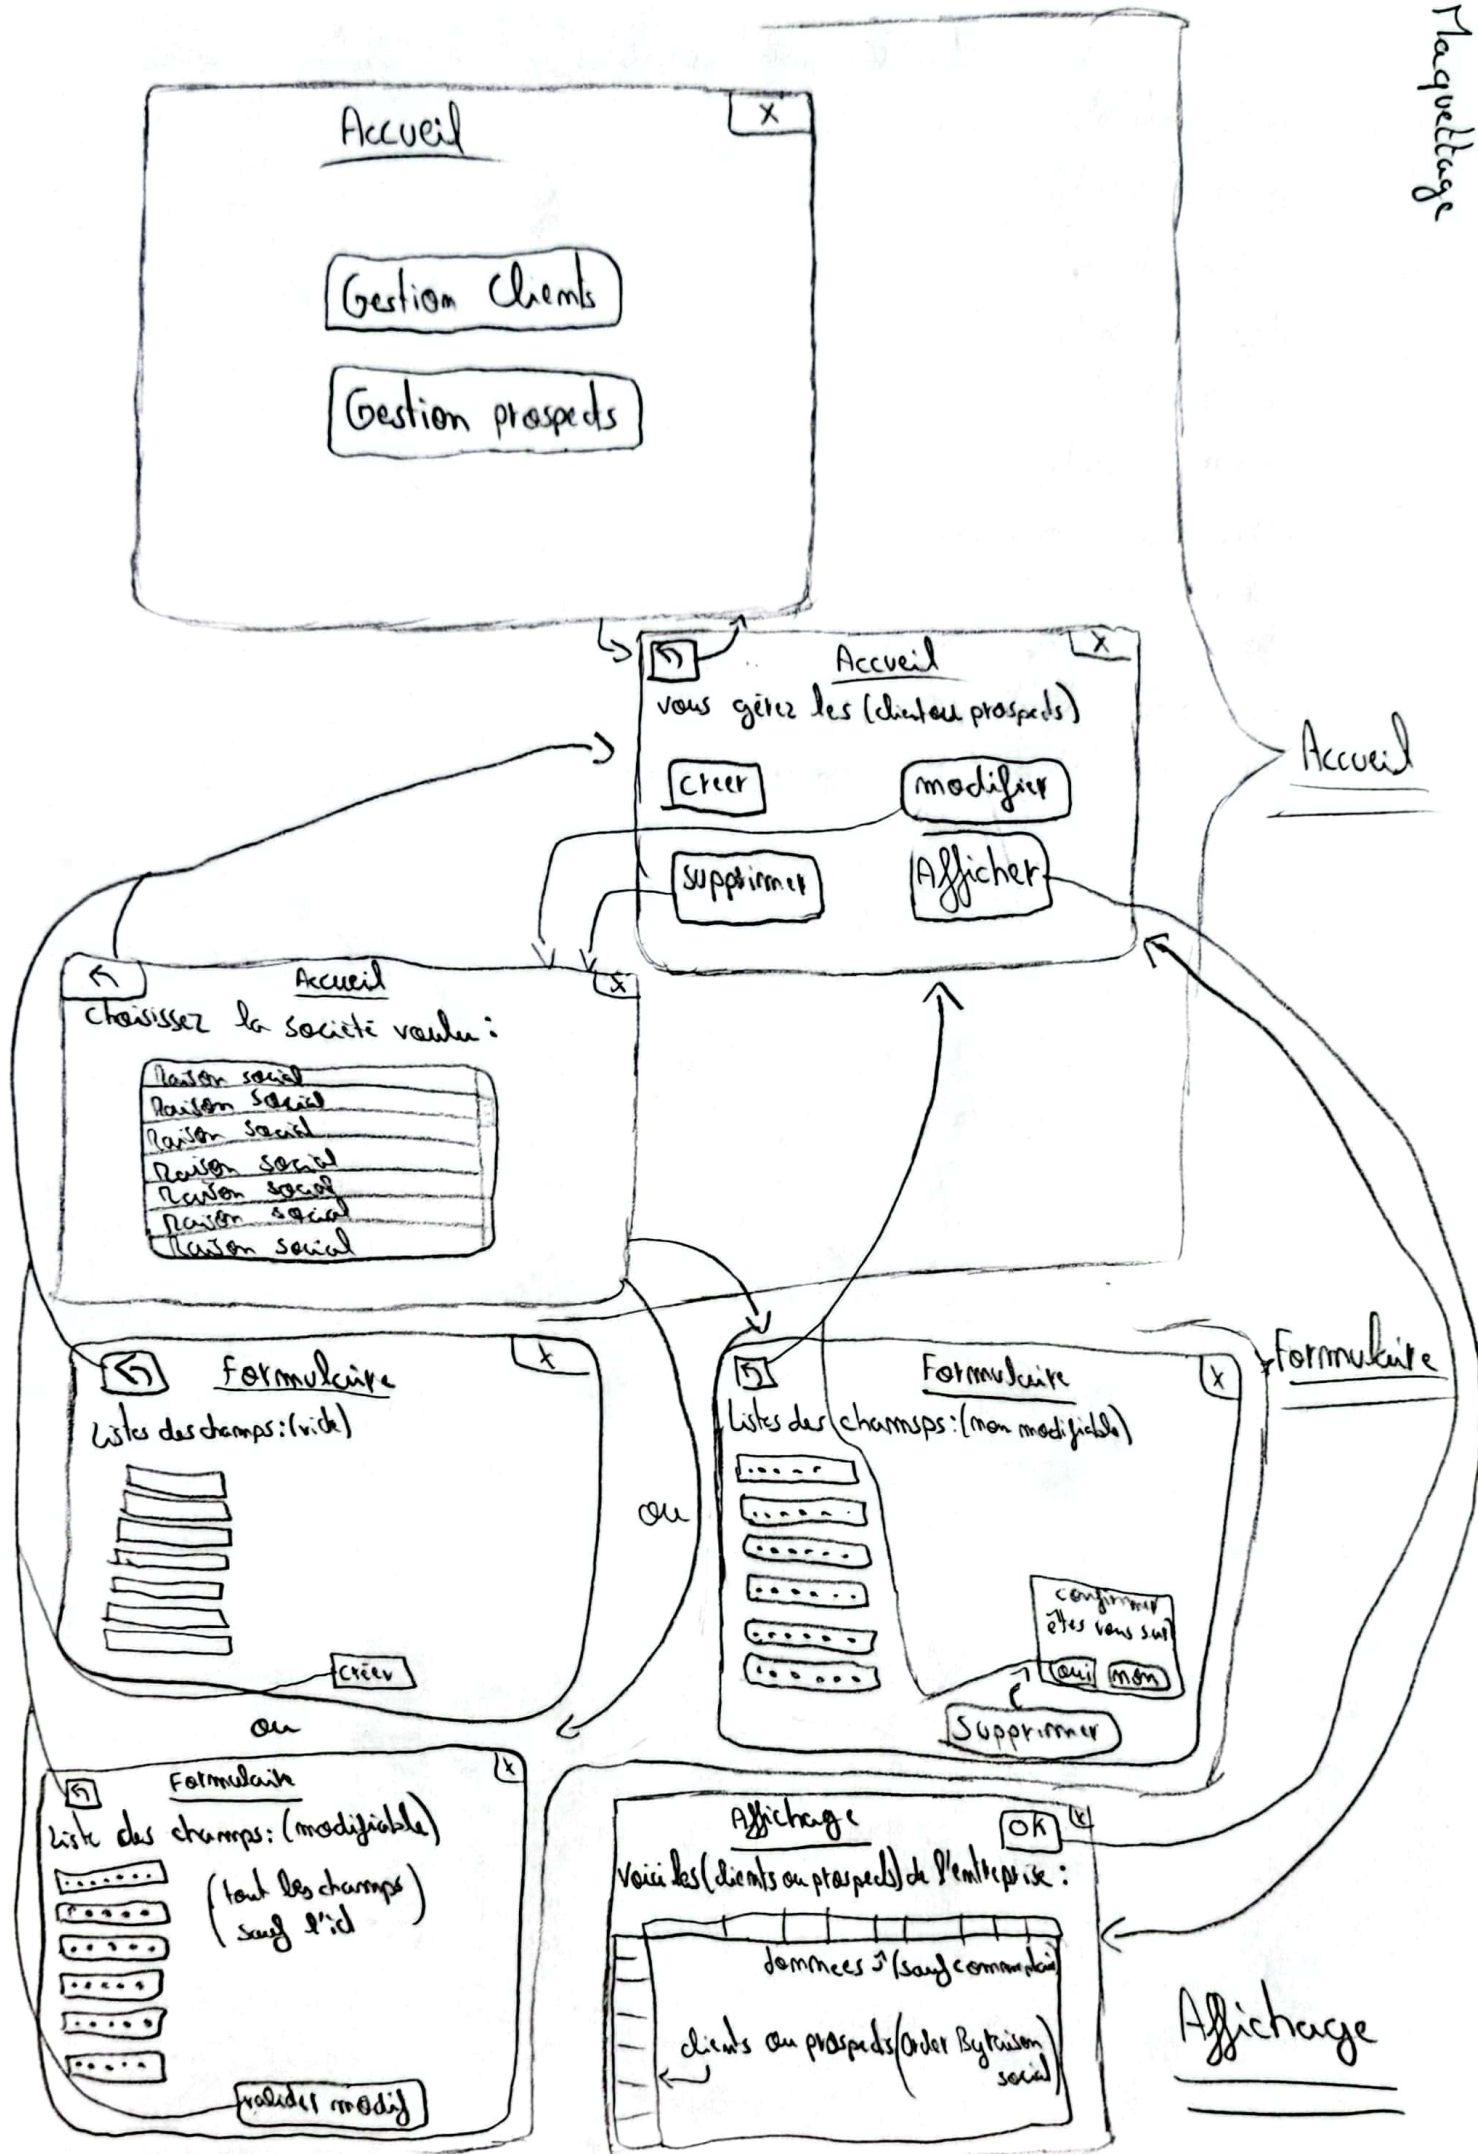 Maquettage
Accueil
X
Gestion Clients
Gestion prospects
Accueil
X
vous gérez les (client ou prospects)
creer
modifier
supprimer
Afficher
Accueil
Accueil
X
choisissez la société voulu :
Raison social
Raison social
Raison social
Raison social
Raison social
Raison social
Raison social
Formulaire
X
Listes des champs : (vide)
créer
ou
ou
Formulaire
X
Listes des chamsps : (non modifiable)
confirmer
êtes vous sur
oui
non
Supprimer
Formulaire
Formulaire
X
Liste des champs : (modifiable)
(tout les champs)
sauf l'id
valider modif
Affichage
OK
X
Voici les (clients ou prospects) de l'entreprise :
données (sauf commentaire
clients ou prospects (Order By raison
social)
Affichage